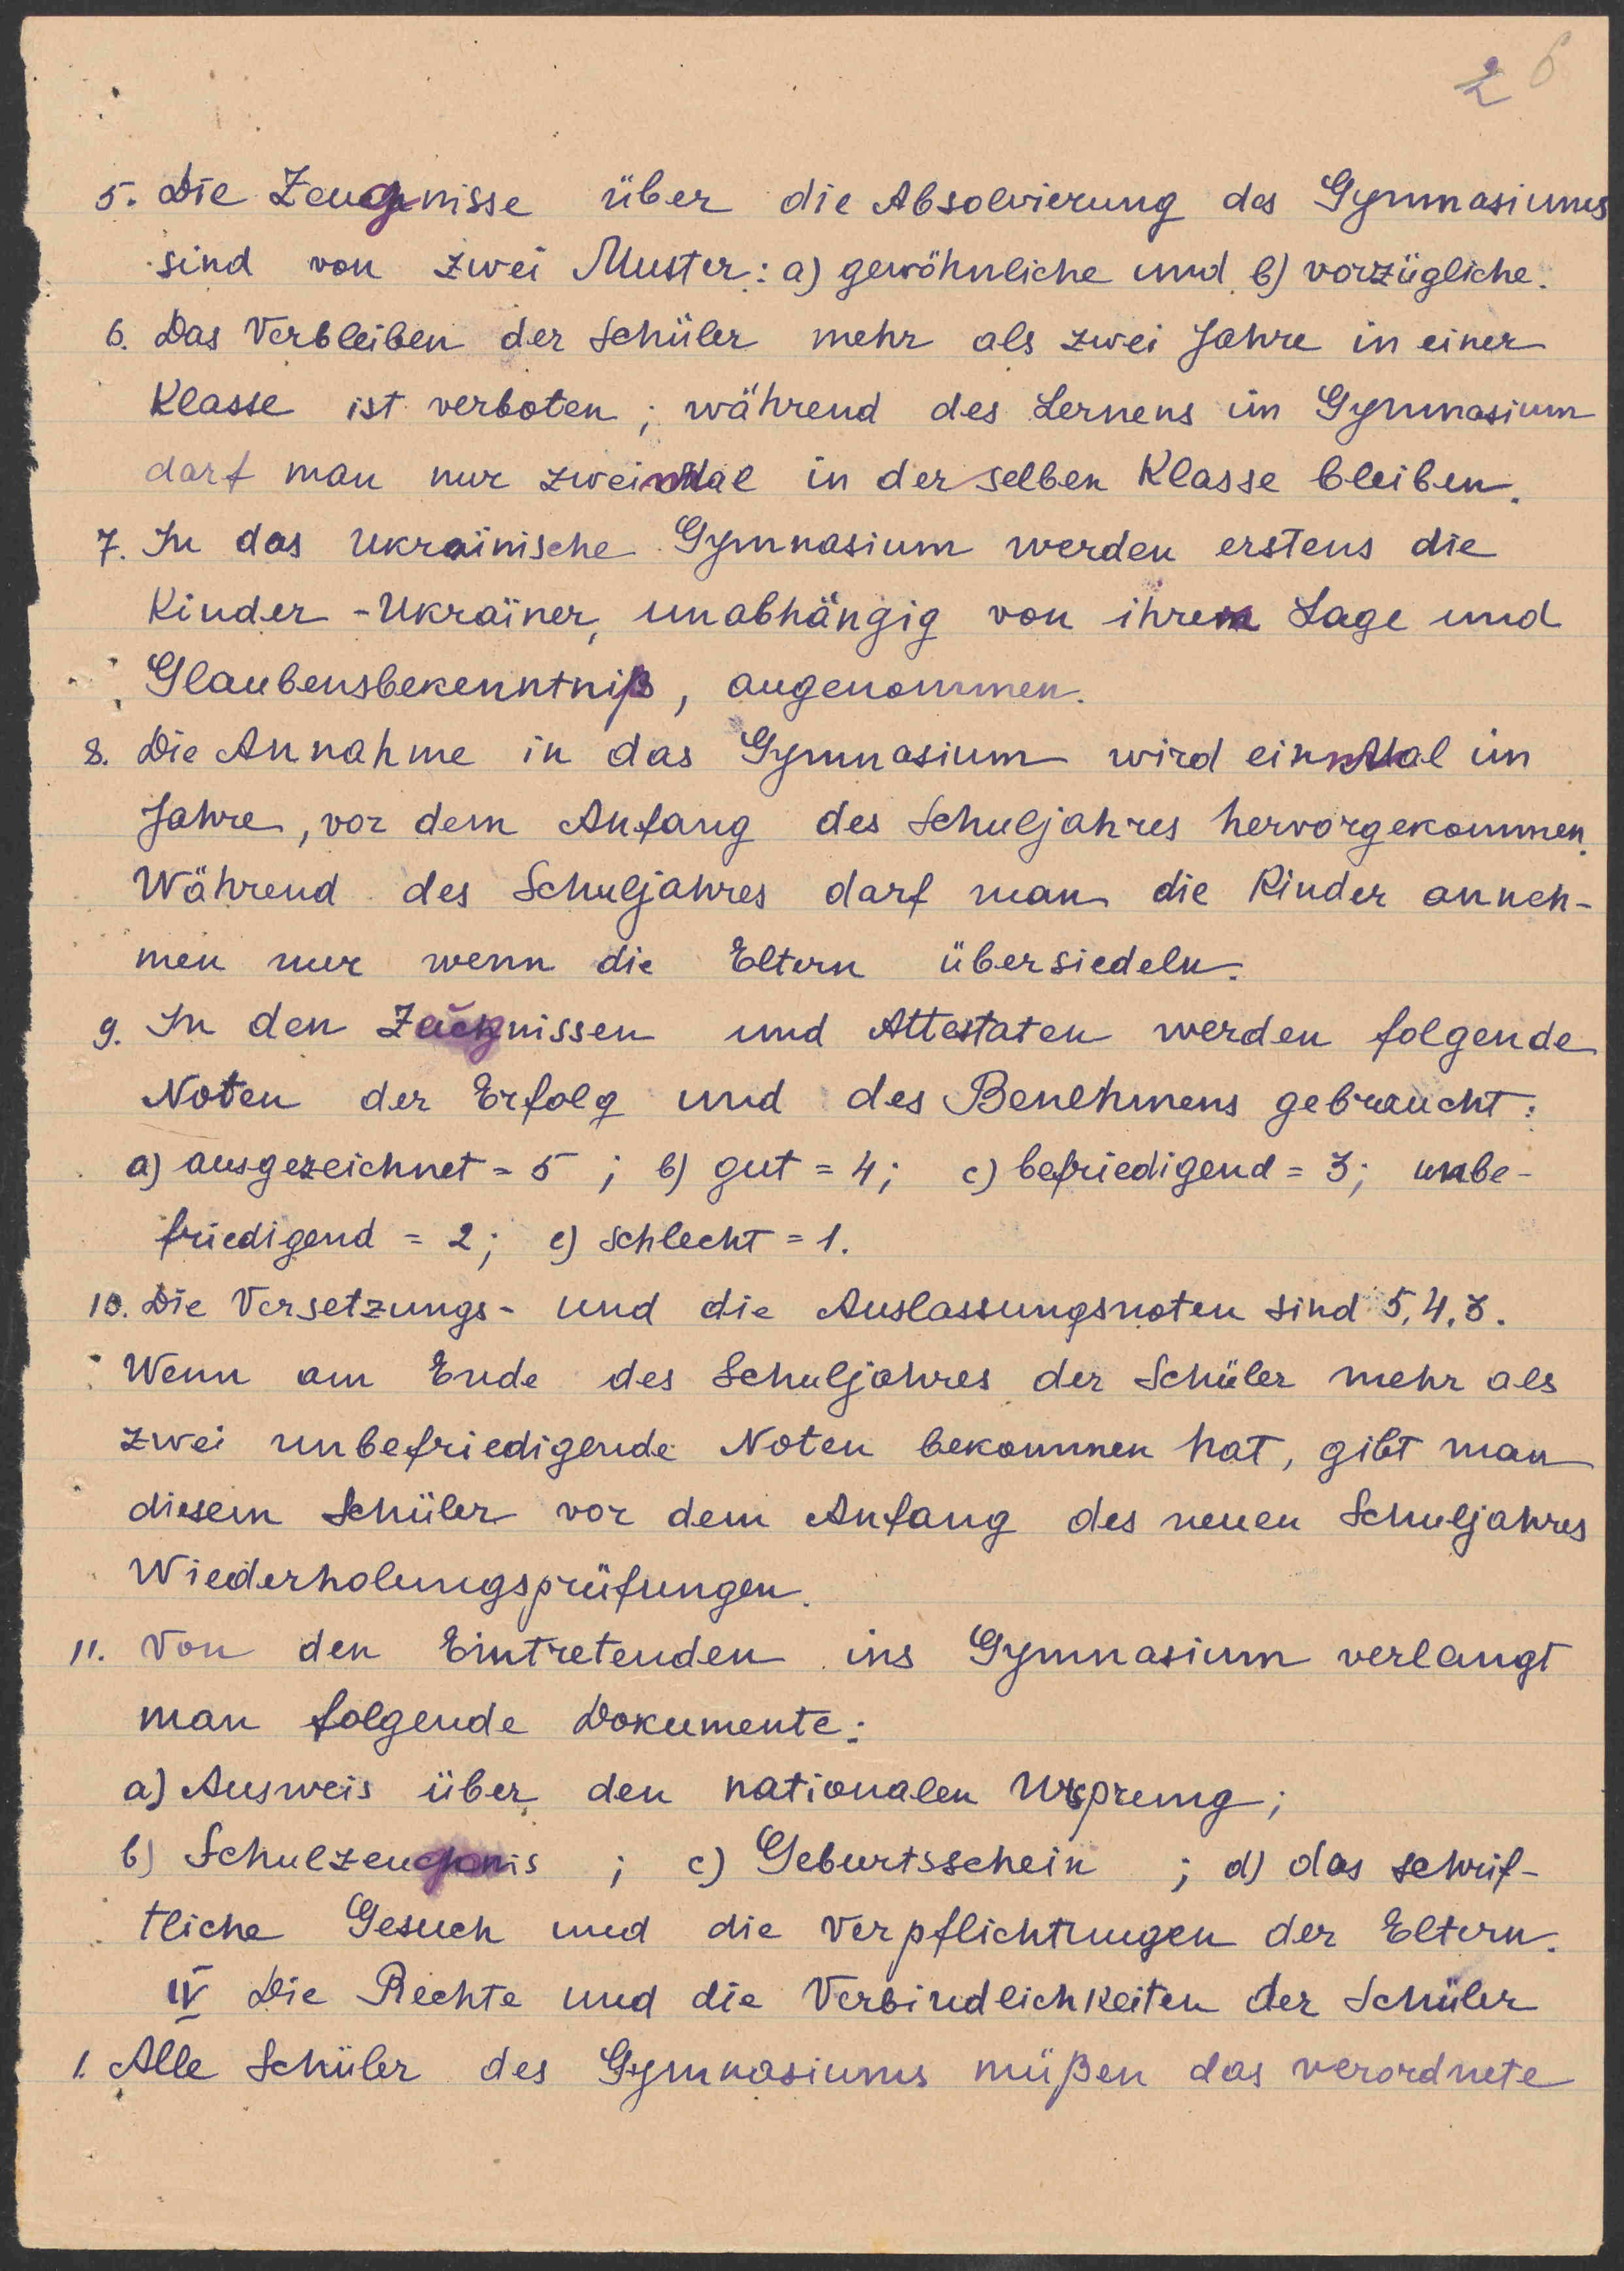 2 6
5. Die Zeugnisse über die Absolvierung des Gymnasiums
sind von zwei Muster: a) gewöhnliche und b) vorzügliche.
6. Das Verbleiben der Schüler mehr als zwei Jahre in einer
Klasse ist verboten; während des Lernens im Gymnasium
darf man nur zweimal in der selben Klasse bleiben.
7. In das Ukraïnische Gymnasium werden erstens die
Kinder-Ukraïner, unabhängig von ihrem Lage und
Glaubensbekenntniß, angenommen.
8. Die Annahme in das Gymnasium wird einmal im
Jahre, vor dem Anfang des Schuljahres hervorgekommen.
Während des Schuljahres darf man die Kinder anneh-
men nur wenn die Eltern übersiedeln.
9. In den Zeugnissen und Attestaten werden folgende
Noten der Erfolg und des Benehmens gebraucht:
a) ausgezeichnet = 5; b) gut = 4; c) befriedigend = 3; unbe-
friedigend = 2; e) schlecht = 1.
10. Die Versetzungs- und die Auslassungsnoten sind 5,4,3.
Wenn am Ende des Schuljahres der Schüler mehr als
zwei unbefriedigende Noten bekommen hat, gibt man
diesem Schüler vor dem Anfang des neuen Schuljahres
Wiederholungsprüfungen.
11. Von den Eintretenden ins Gymnasium verlangt
man folgende Dokumente:
a) Ausweis über den nationalen Ursprung;
b) Schulzeugnis; c) Geburtsschein; d) das schrif-
tliche Gesuch und die Verpflichtungen der Eltern.
IV Die Rechte und die Verbindlichkeiten der Schüler
1. Alle Schüler des Gymnasiums müßen das verordnete